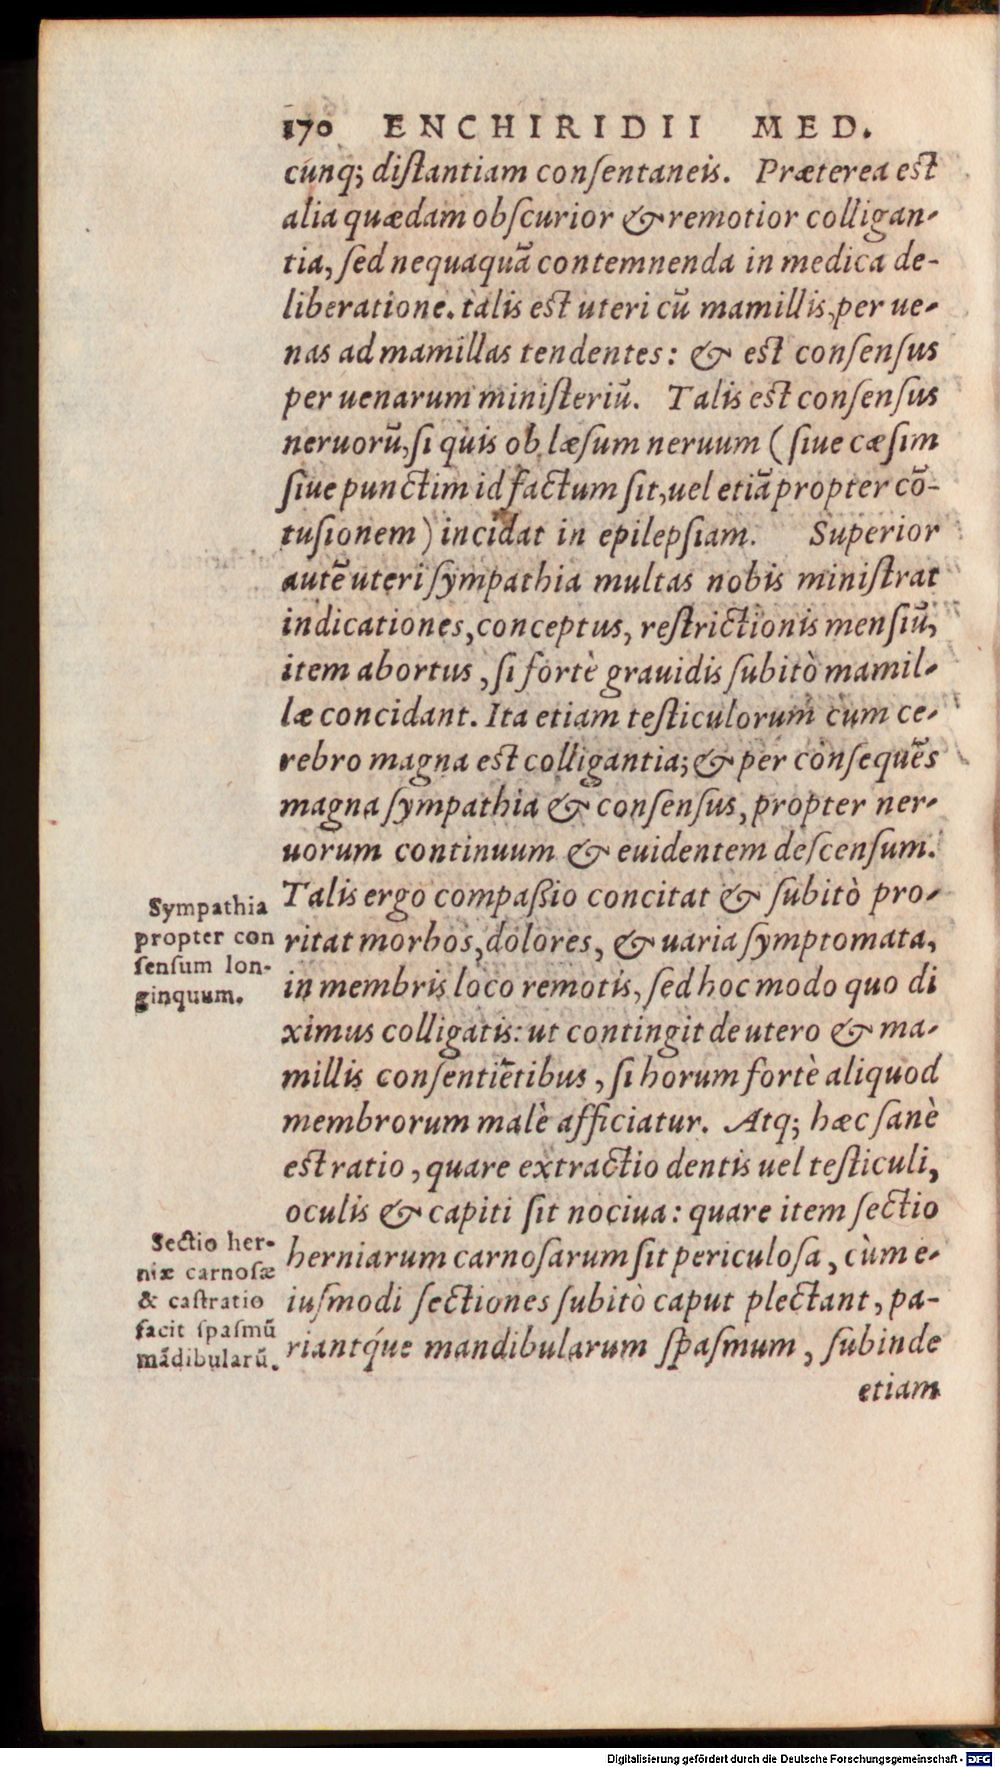 170 ENCHIRIDII MED.
cunq; diſtantiam conſentaneis. Præterea eſt
alia quædam obſcurior & remotior colligan-
tia, ſed nequaquã contemnenda in medica de-
liberatione. talis eſt uteri cũ mamillis, per ue-
nas ad mamillas tendentes: & eſt conſenſus
per uenarum miniſteriũ. Talis eſt conſenſus
neruorũ, ſi quis ob læſum neruum (ſiue cæſim
ſiue punctim id factum ſit, uel etiã propter cõ-
tuſionem) incidat in epilepſiam. Superior
autẽ uteri ſympathia multas nobis miniſtrat
indicationes, conceptus, reſtrictionis menſiũ,
item abortus, ſi fortè grauidis ſubitò mamil-
læ concidant. Ita etiam teſticulorum cum ce-
rebro magna eſt colligantia; & per conſequẽs
magna ſympathia & conſenſus, propter ner-
uorum continuum & euidentem deſcenſum.
Talis ergo compaßio concitat & ſubitò pro-
ritat morbos, dolores, & uaria ſymptomata,
in membris loco remotis, ſed hoc modo quo di
ximus colligatis: ut contingit de utero & ma-
millis conſentiẽtibus, ſi horum fortè aliquod
membrorum malè afficiatur. Atq; hæc ſanè
eſt ratio, quare extractio dentis uel teſticuli,
oculis & capiti ſit nociua: quare item ſectio
herniarum carnoſarum ſit periculoſa, cùm e-
iuſmodi ſectiones ſubitò caput plectant, pa-
riantq́ue mandibularum ſpaſmum, ſubinde
etiam
Sympathia
propter con
ſenſum lon-
ginquum.
Sectio her-
niæ carnoſæ
& caſtratio
facit ſpaſmũ
mãdibularũ.
Digitalisierung gefördert durch die Deutsche Forschungsgemeinschaft - DFG